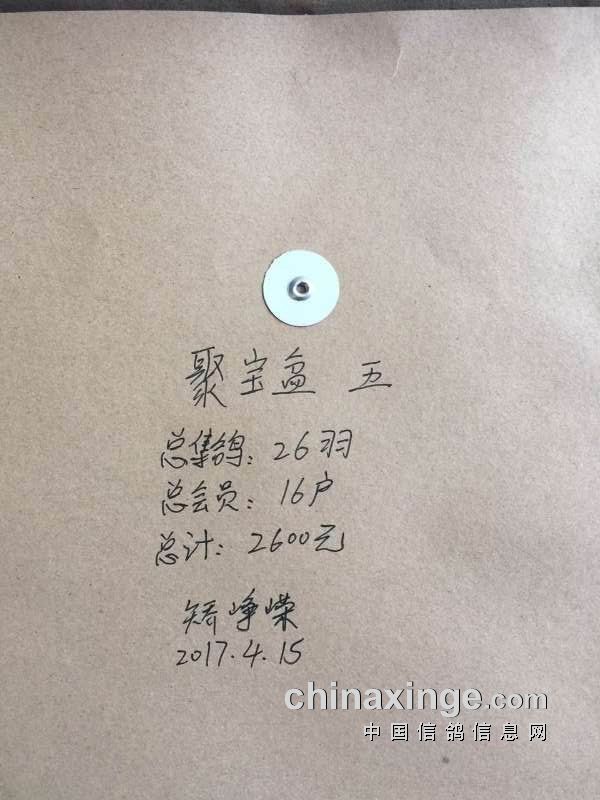 聚宝盆 五
总集鸽：26羽
总会员：16户
总计：2600元
矫峥嵘
2017.4.15
chinaxinge.com
中国信鸽信息网